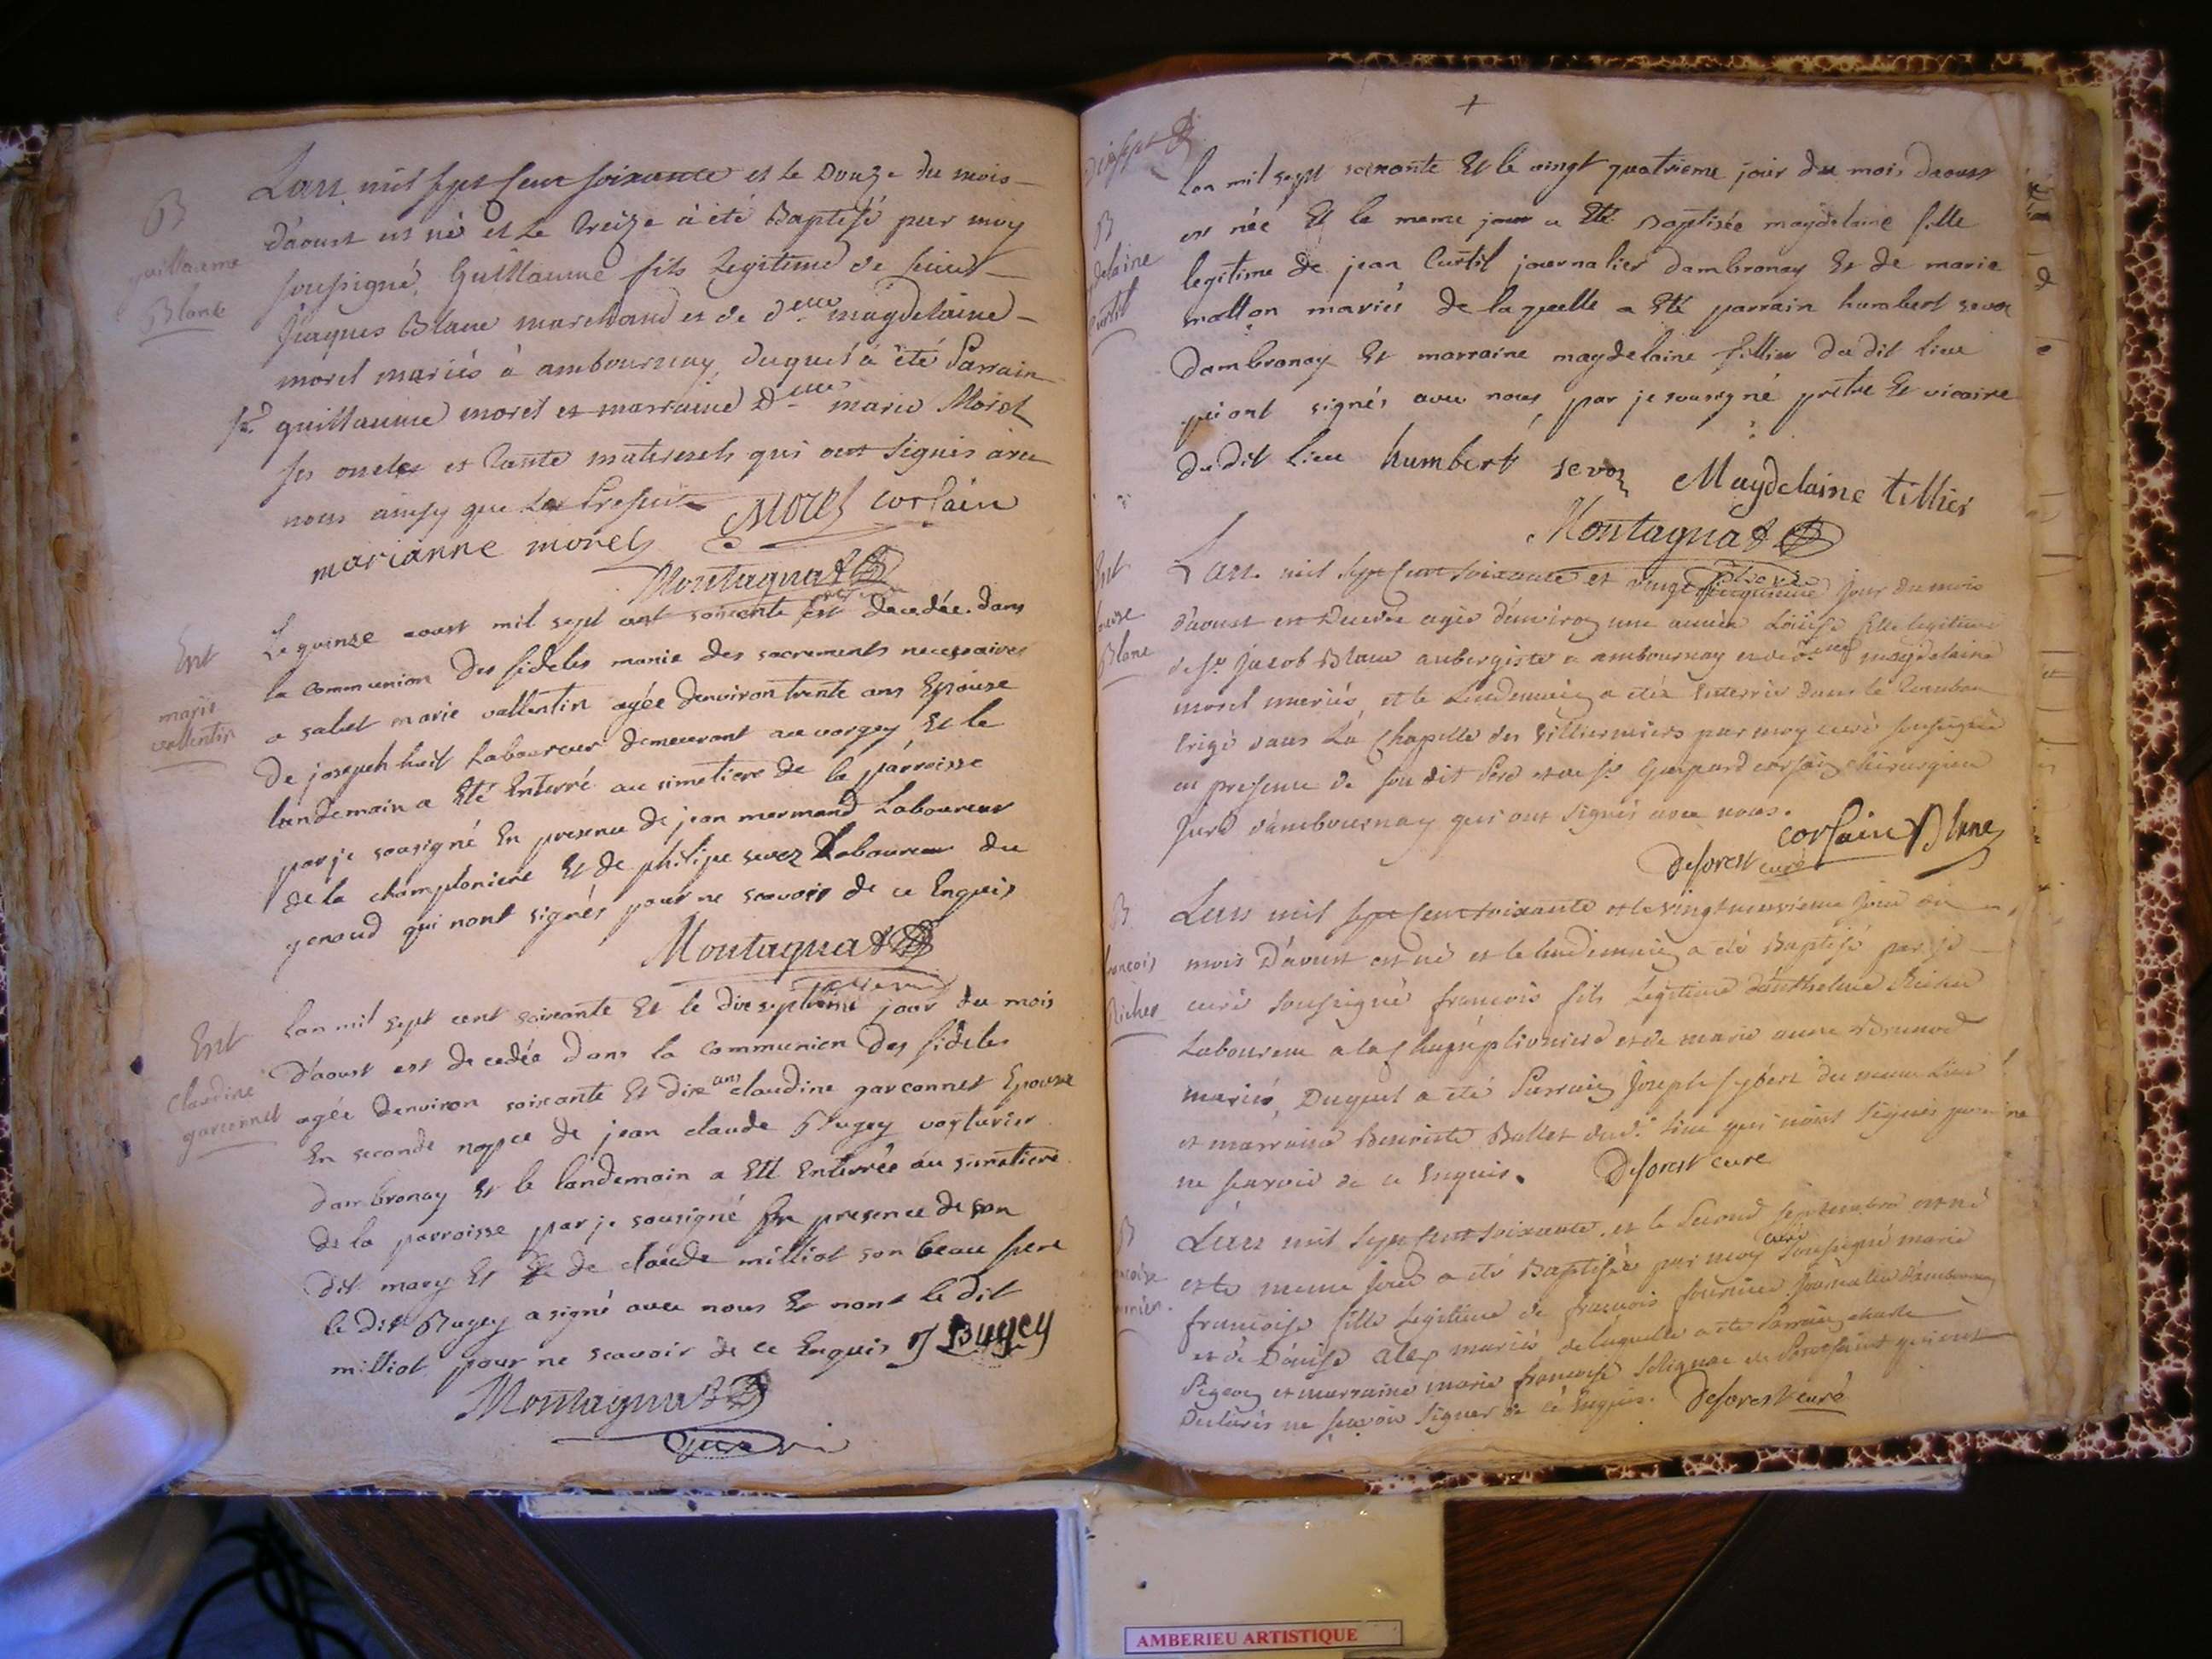 B
guillaume
Blanc
Lan mil sept cent soixante et le Douze du mois
d'aoust est né et le treize à été Baptisé par moy
soussigné, Guillaume fils legitime de sieur
Jaques Blanc marchand et de d.elle magdelaine
morel mariés à ambournay, duquel à été Parrain
sr. guillaume morel et marraine D.elle marie Morel
ses oncles et tante maternels qui ont signés avec
nous ainsy que
Morel corsain
marianne morel
Montagnat
vicaire
Ent
marie
vallentin
Le quinze aoust mil sept cent soixante est decedée dans
la communion des fideles munie des sacrements necessaires
a salut marie vallentin agée denviron trente ans Epouse
de joseph huit Laboureur demeurant au vorgey Et le
landemain a Eté Enterré au simetiere de la parroisse
par je sousigné En presence de jean mermand Laboureur
de la champloniere Et de philipe sevoz Laboureur du
genoud qui nont signés pour ne scavoir de ce Enquis
Montagnat
vicaire
Ent
Claudine
garconnet
Lan mil sept cent soixante Et le dixseptieme jour du mois
d'aoust est decedée dans la communion des fideles
agée denviron soixante Et dix ans claudine garconnet Epouse
En seconde nopce de jean claude Bugey voyturier
dambronay Et le landemain a Eté Enterrée au simetiere
de la parroisse par je sousigné En presence de son
dit mary Et de claude milliat son beau frere
le dit Bugey a signé avec nous Et non le dit
milliat pour ne scavoir de ce Enquis J Bugey
Montagnat
vicaire
+
dixsept
B
delaine
Curtil
Lan mil sept soixante Et le vingt quatrieme jour du mois daoust
est née Et le meme jour a Eté Baptisée magdelaine fille
legitime de jean Curtil journalier dambronay Et de marie
matton mariés de laquelle a Eté parrain humbert sevoz
dambronay Et marraine magdelaine tillier du dit lieu
qui ont signés avec nous par je sousigné prêtre Et vicaire
du dit lieu humbert sevoz Magdelaine tillier
Montagnat
vicaire
Ent
Louise
Blanc
Lan mil sept cent soixante et vingt cinquieme jour du mois
d'aoust est Decedée agée d'environ une année Loüise fille legitime
de sr. Jacob Blanc aubergiste a ambournay et de d.elle magdelaine
morel mariés, et le Lendemain a étée Enterrée dans le Tombeau
Erigé dans La Chapelle des par moy curé soussigné
en presence de son dit Pere et de sr. Gaspard corsain chirurgien
Juré d'ambournay qui ont signés avec nous.
corsain Blanc
deforest curé
B
francois
Richer
Lan mil sept cent soixante et le vingt neuvieme jour du
mois D'aoust est né et le lendemain a été Baptisé par je
curé soussigné francois fils Legitime d'anthelme
Laboureur a la Champlionniere et de marie anne Brunod
mariés, Duquel a été Parrain Joseph du meme Lieu
et marraine Benoiste Ballet dud. Lieu qui n'ont signés pour
ne scavoir de ce Enquis. deforest cure
B
Lan mil sept cent soixante, et le second septembre est né
et le meme jour a été Baptisée par moy curé soussigné marie
francoise fille Legitime de francois fournier journalier d'ambournay
et de Denise mariés, de laquelle a été Parrain charle
Pegeon et marraine marie francoise qui ont
Declarés ne scavoir signer de ce Enquis. deforest curé
AMBERIEU ARTISTIQUE